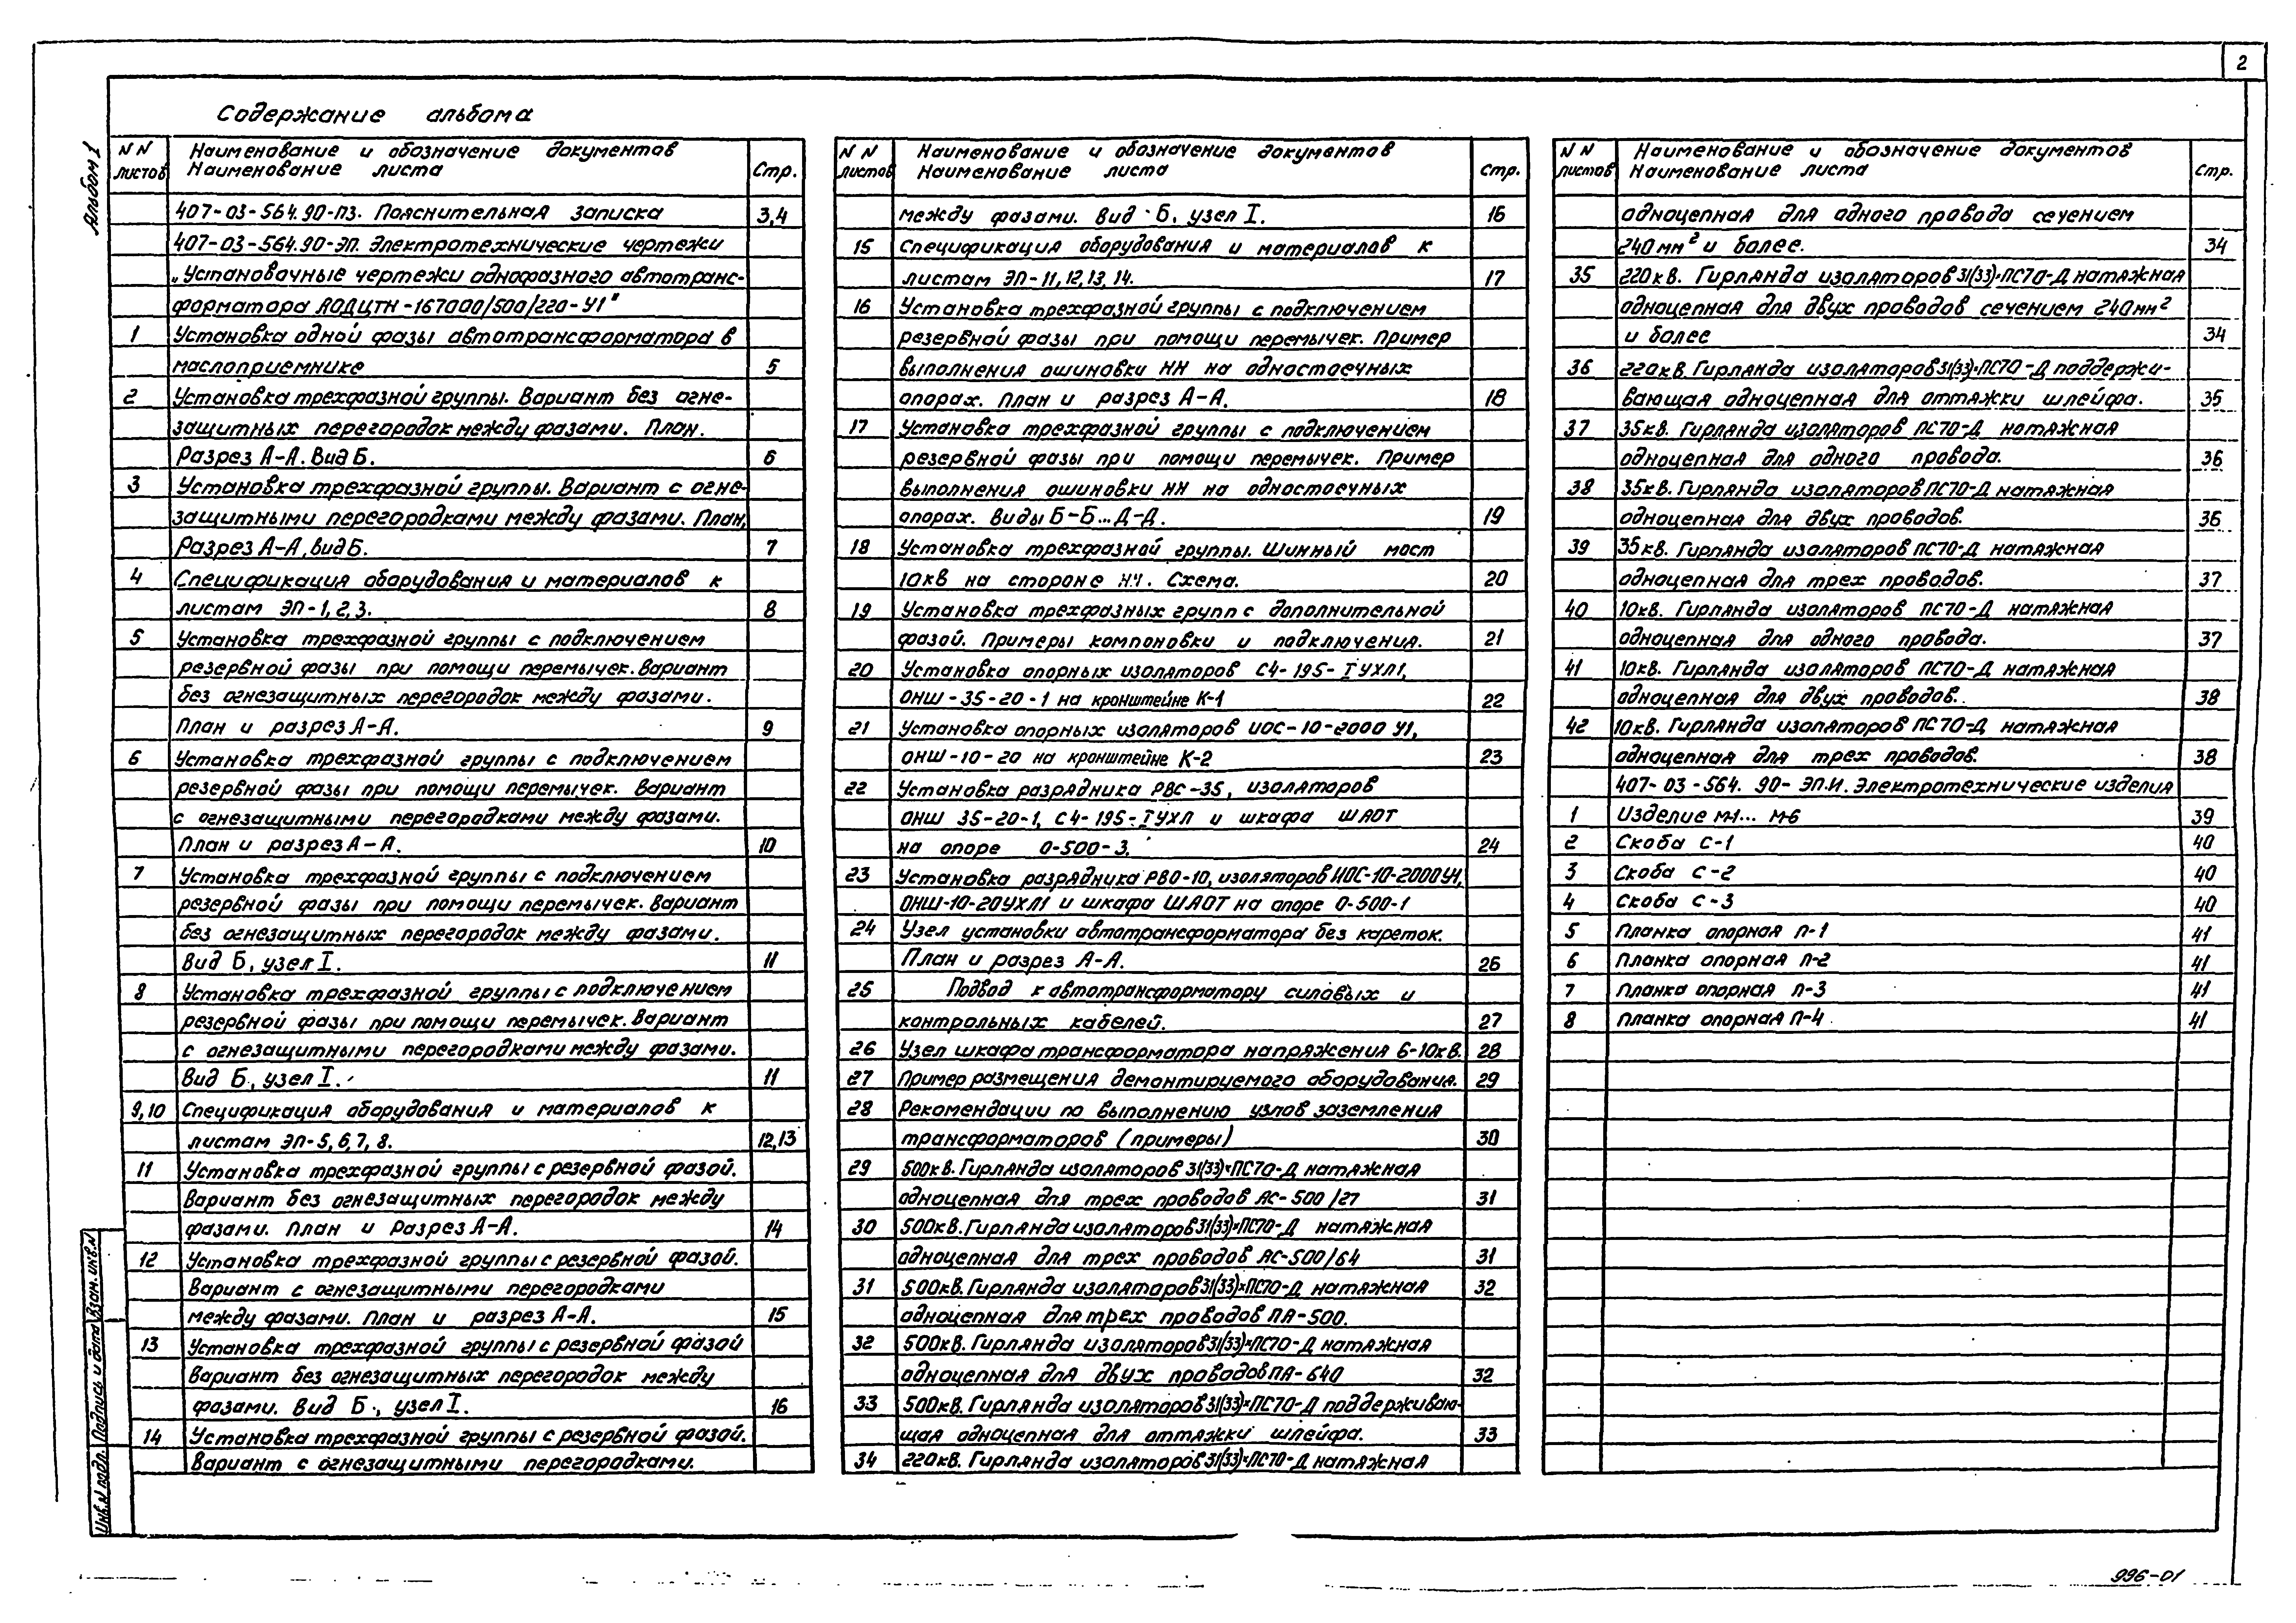 2
Альбом 1
Содержание альбома
N N листов
Наименование и обозначение документов
Наименование листа
Стр.
407-03-564.90-ПЗ. Пояснительная записка 3,4
407-03-564.90-ЭП. Электротехнические чертежи
„Установочные чертежи однофазного автотранс-
форматора АОДЦТН-167000/500/220-У1"
1 Установка одной фазы автотрансформатора в
маслоприемнике 5
2 Установка трехфазной группы. Вариант без огне-
защитных перегородок между фазами. План.
Разрез А-А. Вид Б. 6
3 Установка трехфазной группы. Вариант с огне-
защитными перегородками между фазами. План,
Разрез А-А, вид Б. 7
4 Спецификация оборудования и материалов к
листам ЭП-1,2,3. 8
5 Установка трехфазной группы с подключением
резервной фазы при помощи перемычек. Вариант
без огнезащитных перегородок между фазами.
План и разрез А-А. 9
6 Установка трехфазной группы с подключением
резервной фазы при помощи перемычек. Вариант
с огнезащитными перегородками между фазами.
План и разрез А-А. 10
7 Установка трехфазной группы с подключением
резервной фазы при помощи перемычек. Вариант
без огнезащитных перегородок между фазами.
Вид Б, узел I. 11
8 Установка трехфазной группы с подключением
резервной фазы при помощи перемычек. Вариант
с огнезащитными перегородками между фазами.
Вид Б, узел I. 11
9,10 Спецификация оборудования и материалов к
листам ЭП-5,6,7,8. 12,13
11 Установка трехфазной группы с резервной фазой.
Вариант без огнезащитных перегородок между
фазами. План и Разрез А-А. 14
12 Установка трехфазной группы с резервной фазой.
Вариант с огнезащитными перегородками
между фазами. План и разрез А-А. 15
13 Установка трехфазной группы с резервной фазой
Вариант без огнезащитных перегородок между
фазами. Вид Б, узел I. 16
14 Установка трехфазной группы с резервной фазой.
Вариант с огнезащитными перегородками.
N N листов
Наименование и обозначение документов
Наименование листа
стр.
между фазами. Вид Б, узел I. 16
15 Спецификация оборудования и материалов к
листам ЭП-11,12,13,14. 17
16 Установка трехфазной группы с подключением
резервной фазы при помощи перемычек. Пример
выполнения ошиновки НН на одностоечных
опорах. План и разрез А-А. 18
17 Установка трехфазной группы с подключением
резервной фазы при помощи перемычек. Пример
выполнения ошиновки НН на одностоечных
опорах. Виды Б-Б...Д-Д. 19
18 Установка трехфазной группы. Шинный мост
10кв на стороне НН. Схема. 20
19 Установка трехфазных групп с дополнительной
фазой. Примеры компоновки и подключения. 21
20 Установка опорных изоляторов С4-195-I УХЛ1,
ОНШ-35-20-1 на кронштейне К-1 22
21 Установка опорных изоляторов ИОС-10-2000 У1,
ОНШ-10-20 на кронштейне К-2 23
22 Установка разрядника РВС-35, изоляторов
ОНШ 35-20-1, С4-195-I УХЛ и шкафа ШАОТ
на опоре О-500-3. 24
23 Установка разрядника РВО-10, изоляторов ИОС-10-2000У1,
ОНШ-10-20УХЛ1 и шкафа ШАОТ на опоре О-500-1
24 Узел установки автотрансформатора без кареток.
План и разрез А-А. 26
25 Подвод к автотрансформатору силовых и
контрольных кабелей. 27
26 Узел шкафа трансформатора напряжения 6-10кв. 28
27 Пример размещения демонтируемого оборудования. 29
28 Рекомендации по выполнению узлов заземления
трансформаторов (примеры) 30
29 500кв. Гирлянда изоляторов 31(33)×ПС70-Д натяжная
одноцепная для трех проводов АС-500/27 31
30 500кв. Гирлянда изоляторов 31(33)×ПС70-Д натяжная
одноцепная для трех проводов АС-500/64 31
31 500кв. Гирлянда изоляторов 31(33)×ПС70-Д натяжная 32
одноцепная для трех проводов ПА-500.
32 500кв. Гирлянда изоляторов 31(33)×ПС70-Д натяжная
одноцепная для двух проводов ПА-640 32
33 500кв. Гирлянда изоляторов 31(33)×ПС70-Д поддерживаю-
щая одноцепная для оттяжки шлейфа. 33
34 220кв. Гирлянда изоляторов 31(33)×ПС70-Д натяжная
N N листов
Наименование и обозначение документов
Наименование листа
стр.
одноцепная для одного провода сечением
240мм² и более. 34
35 220кв. Гирлянда изоляторов 31(33)×ПС70-Д натяжная
одноцепная для двух проводов сечением 240мм²
и более 34
36 220кв. Гирлянда изоляторов 31(33)×ПС70-Д поддержи-
вающая одноцепная для оттяжки шлейфа. 35
37 35кв. Гирлянда изоляторов ПС70-Д натяжная
одноцепная для одного провода. 36
38 35кв. Гирлянда изоляторов ПС70-Д натяжная
одноцепная для двух проводов. 36
39 35кв. Гирлянда изоляторов ПС70-Д натяжная
одноцепная для трех проводов. 37
40 10кв. Гирлянда изоляторов ПС70-Д натяжная
одноцепная для одного провода. 37
41 10кв. Гирлянда изоляторов ПС70-Д натяжная
одноцепная для двух проводов. 38
42 10кв. Гирлянда изоляторов ПС70-Д натяжная
одноцепная для трех проводов. 38
407-03-564.90-ЭП.И. Электротехнические изделия
1 Изделие М-1... М-6 39
2 Скоба С-1 40
3 Скоба С-2 40
4 Скоба С-3 40
5 Планка опорная П-1 41
6 Планка опорная П-2 41
7 Планка опорная П-3 41
8 Планка опорная П-4 41
Инв.N подл. Подпись и дата Взам. инв.N
996-01